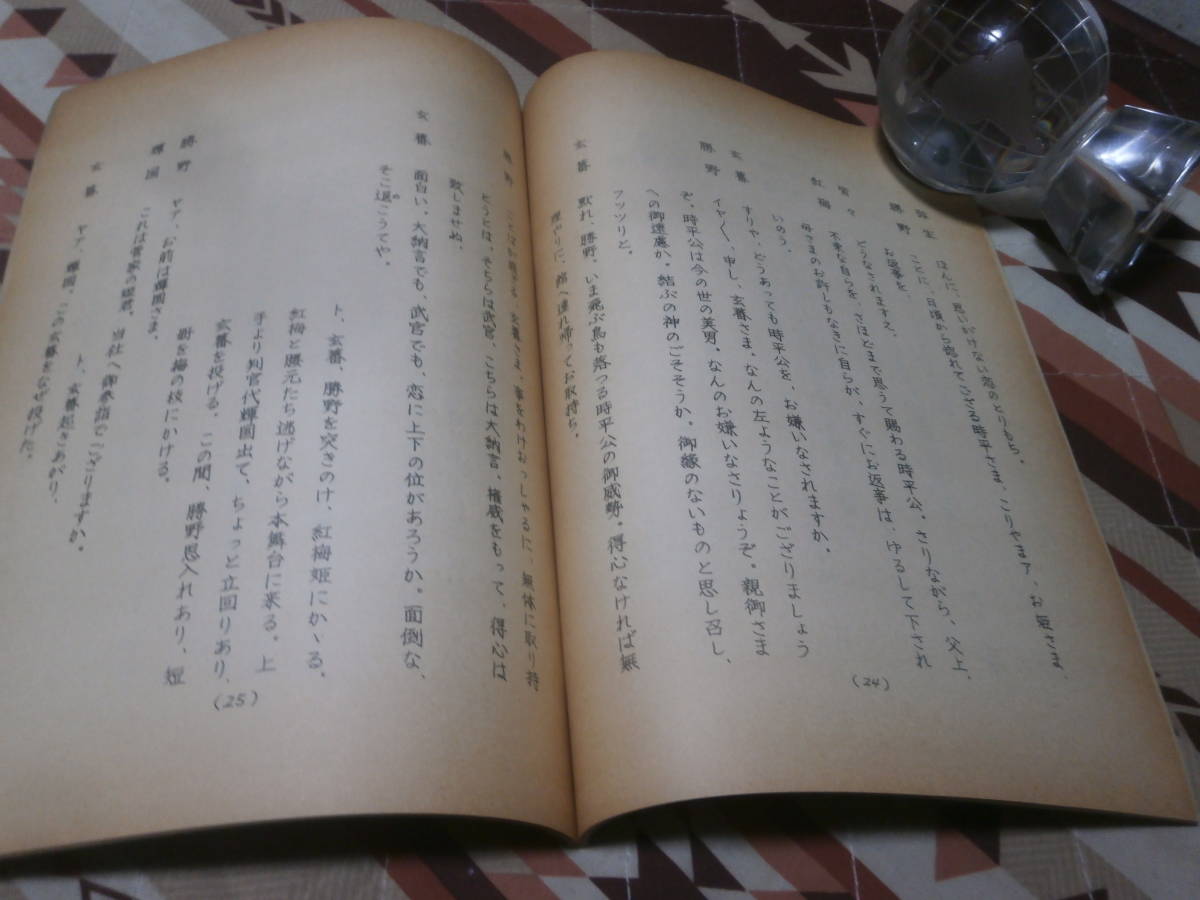 弥生 ほんに、思いがけない恋のとりもち。
勝野 ことに、日頃から惚れてござる時平さま、こりゃまア、お姫さま、
皆々 お返事を。
どうなされますえ。
紅梅 不束な自らを、さほどまで思うて賜わる時平公。さりながら、父上、
母さまのお許しもなきに自らが、すぐにお返事は、ゆるして下され
いのう。
玄番 すりゃ、どうあっても時平公を、お嫌いなされますか。
勝野 イヤ〱、申し、玄番さま、なんの左ようなことがござりましょう
ぞ。時平公は今の世の美男。なんのお嫌いなさりょうぞ。親御さま
への御遠慮か。結ぶの神のごそそうか。御縁のないものと思し召し、
フッツリと。
玄番 黙れ、勝野。いま飛ぶ鳥も落つる時平公の御威勢。得心なければ無
理やりに、館へ連れ帰ってお取持ち。
(24)
勝野 ことばが過ぎる、玄番さま。事をわけおっしゃるに、無体に取り持
とうとは。そちらは武官、こちらは大納言、権威をもって、得心は
致しませぬ。
玄番 面白い。大納言でも、武官でも、恋に上下の位があろうか。面倒な、
そこ退こうてや。
ト、玄番、勝野を突きのけ、紅梅姫にかゝる。
紅梅と腰元たち逃げながら本舞台に来る。上
手より判官代輝国出て、ちょっと立回りあり、
玄番を投げる。この間、勝野思入れあり、短
冊を梅の枝にかける。
勝野 ヤア、お前は輝国さま。
輝国 これは菅家の姫君。当社へ御参詣でござりますか。
ト、玄番起きあがり、
玄番 ヤア、輝国、この玄番をなぜ投げた。
(25)